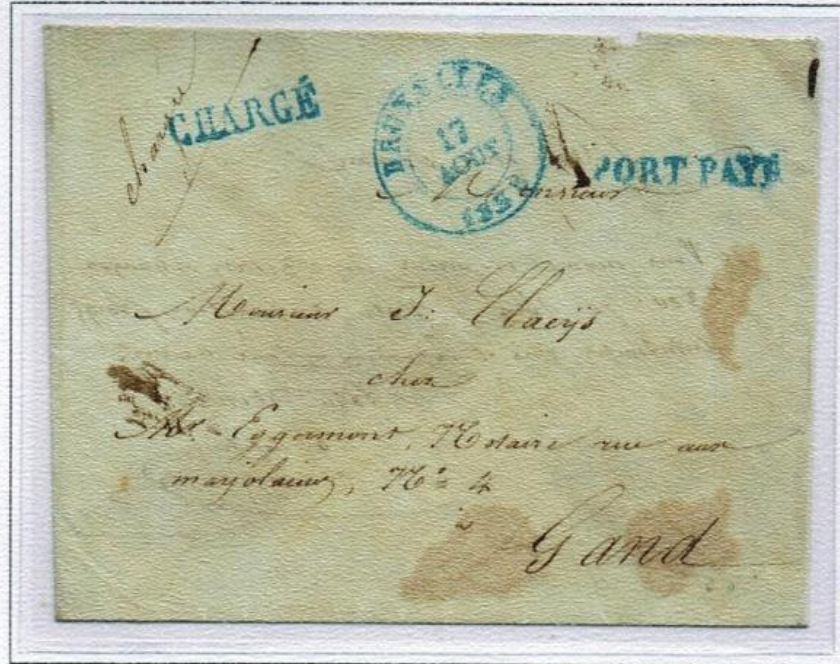 chargé
CHARGÉ
BRUXELLES
17
AOUT
PORT PAYÉ
Monsieur
Monsieur J: Claeÿs
chez
Mr. Eggermont, Notaire rue aux
marjolaines, No = 4
à
Gand